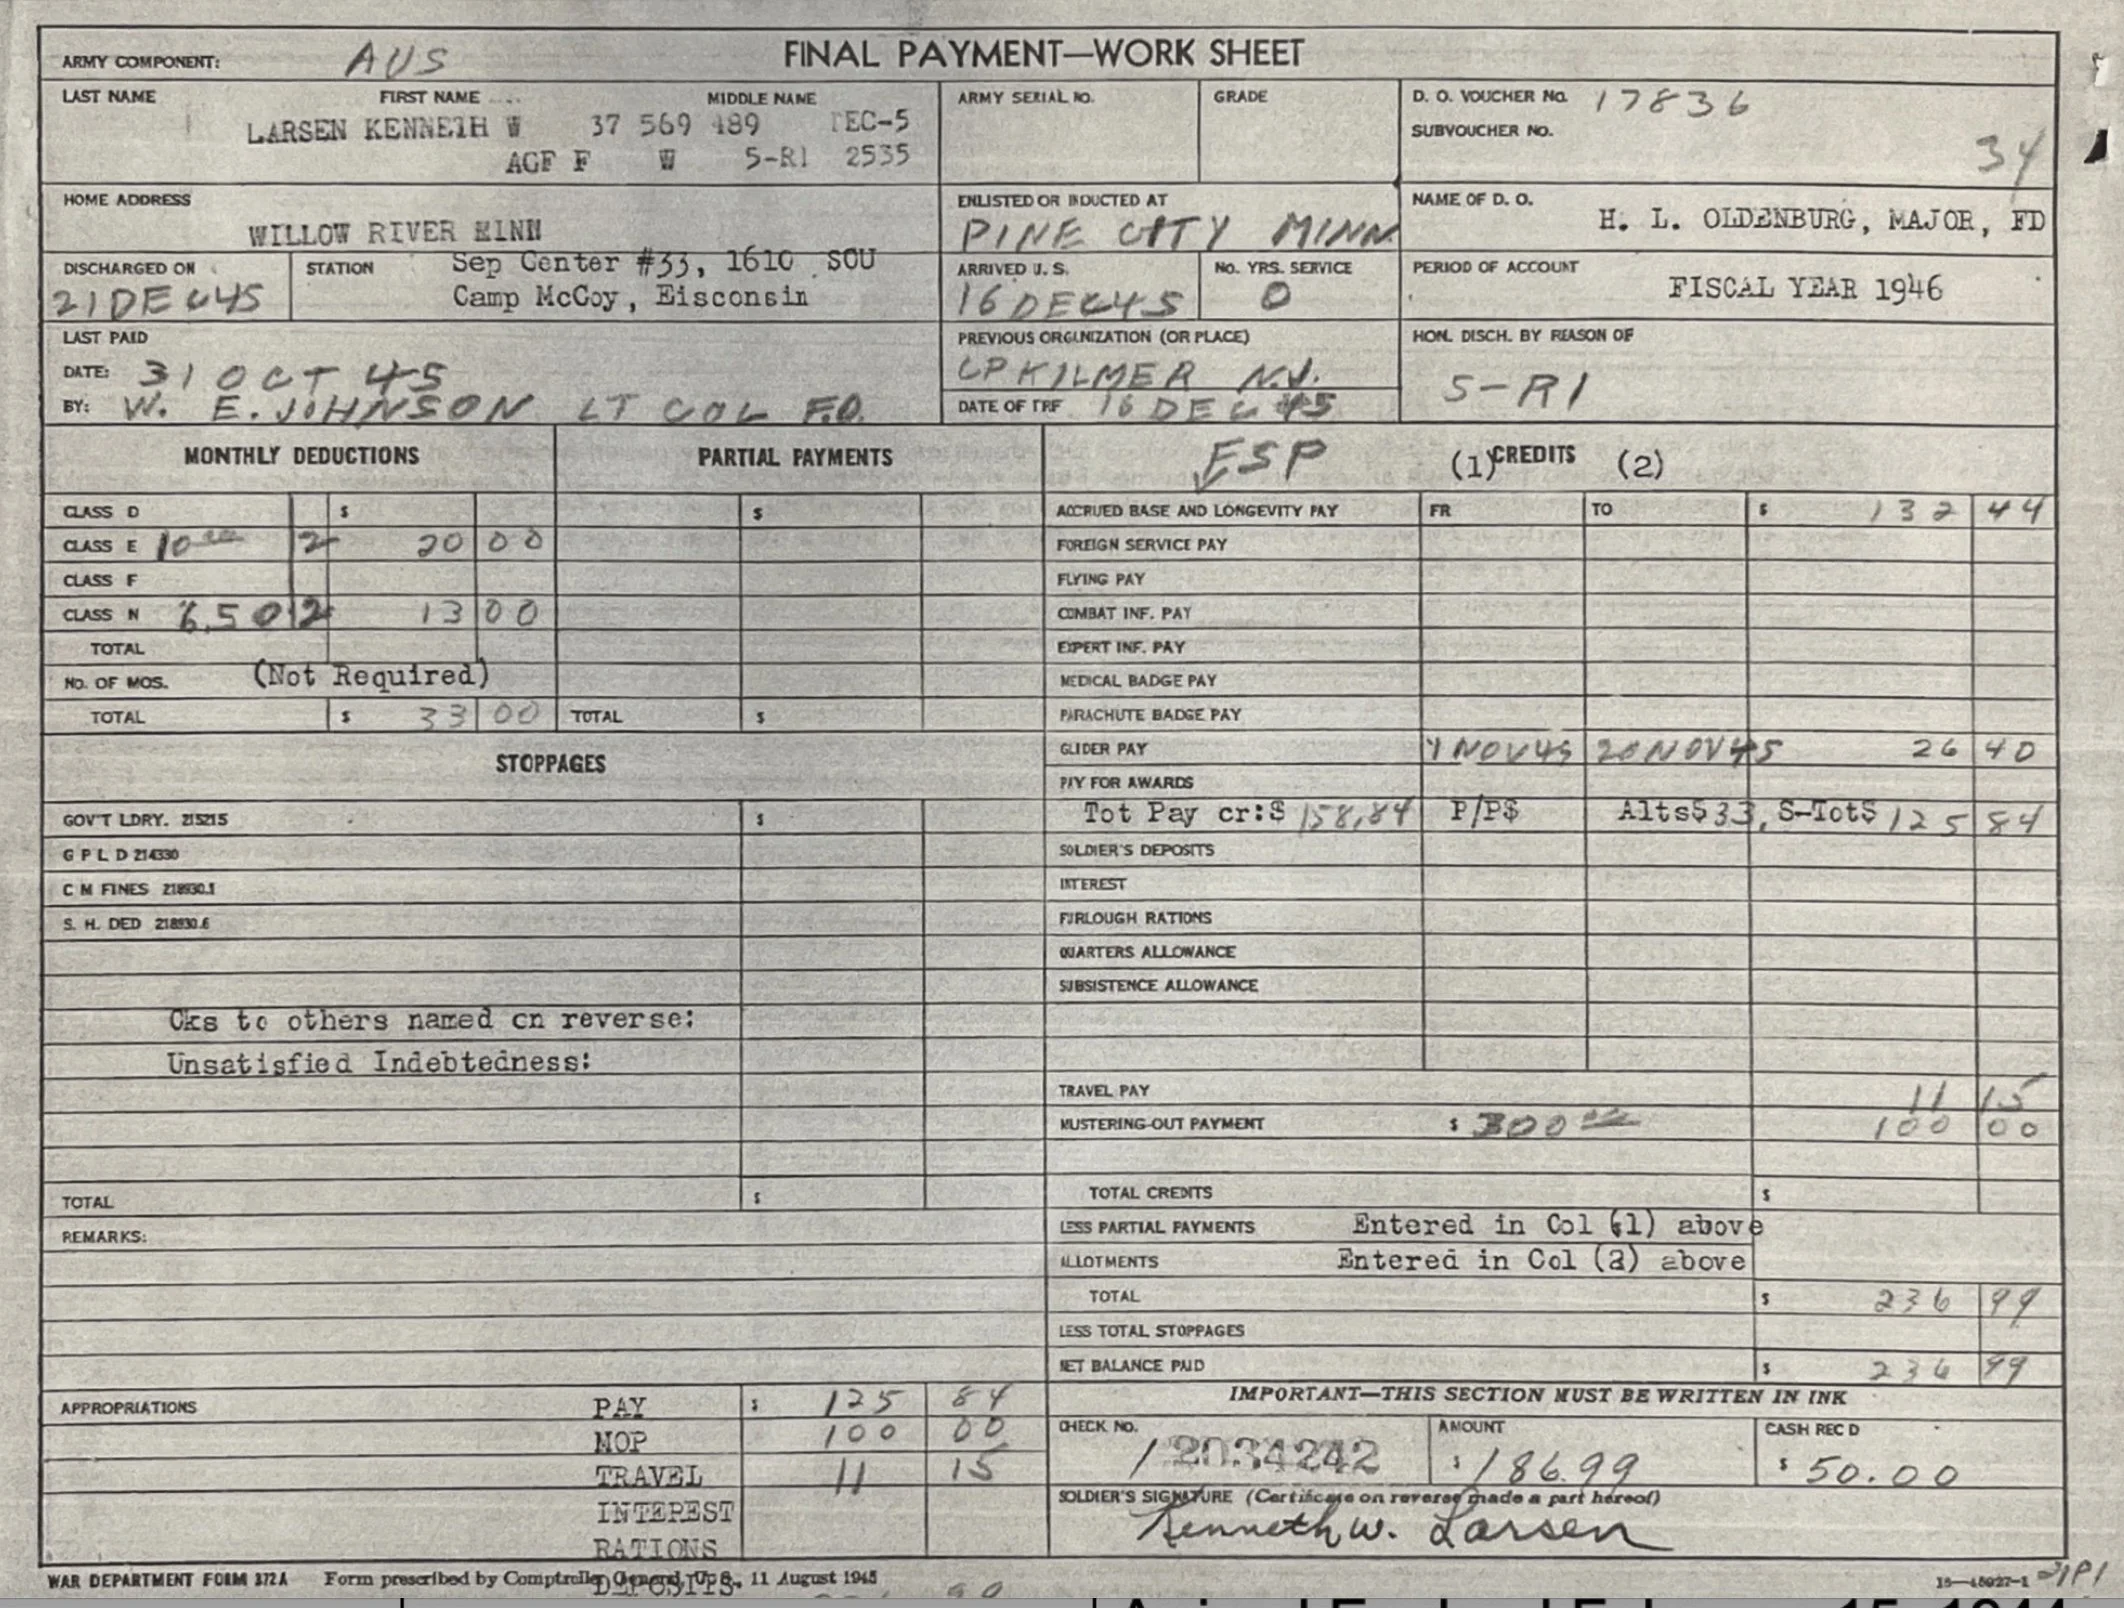 ARMY COMPONENT: AUS
FINAL PAYMENT—WORK SHEET
LAST NAME FIRST NAME MIDDLE NAME
LARSEN KENNETH W 37 569 489 TEC-5
AGF F W 5-R1 2535
ARMY SERIAL NO.
GRADE
D. O. VOUCHER NO. 17836
SUBVOUCHER NO.
34
HOME ADDRESS
WILLOW RIVER MINN
ENLISTED OR INDUCTED AT
PINE CITY MINN
NAME OF D. O.
H. L. OLDENBURG, MAJOR, FD
DISCHARGED ON
21 DEC 45
STATION
Sep Center #33, 1610 SCU
Camp McCoy, Eisconsin
ARRIVED U. S.
16 DEC 45
NO. YRS. SERVICE
0
PERIOD OF ACCOUNT
FISCAL YEAR 1946
LAST PAID
DATE: 31 OCT 45
BY: W. E. JOHNSON LT COL F.D.
PREVIOUS ORGANIZATION (OR PLACE)
CP KILMER N.J.
DATE OF TRF 16 DEC 45
HON. DISCH. BY REASON OF
5-R1
MONTHLY DEDUCTIONS
CLASS D $
CLASS E 10 00 2 20 00
CLASS F
CLASS N 6.50 2 13 00
TOTAL
NO. OF MOS. (Not Required)
TOTAL $ 33 00
PARTIAL PAYMENTS
$
TOTAL $
ESP (1) CREDITS (2)
ACCRUED BASE AND LONGEVITY PAY FR TO $ 132 44
FOREIGN SERVICE PAY
FLYING PAY
COMBAT INF. PAY
EXPERT INF. PAY
MEDICAL BADGE PAY
PARACHUTE BADGE PAY
GLIDER PAY 1 NOV 45 20 NOV 45 26 40
PAY FOR AWARDS
Tot Pay cr:$ 158,84 P/P$ Alts$ 33, S-Tot$ 125 84
SOLDIER'S DEPOSITS
INTEREST
FURLOUGH RATIONS
QUARTERS ALLOWANCE
SUBSISTENCE ALLOWANCE
TRAVEL PAY 11 15
MUSTERING-OUT PAYMENT $ 300 00 100 00
TOTAL CREDITS $
LESS PARTIAL PAYMENTS Entered in Col (1) above
ALLOTMENTS Entered in Col (2) above
TOTAL $ 236 99
LESS TOTAL STOPPAGES
NET BALANCE PAID $ 236 99
STOPPAGES
GOV'T LDRY. 215215 $
G P L D 214330
C M FINES 218930.1
S. H. DED 218930.6
Cks to others named on reverse:
Unsatisfied Indebtedness:
TOTAL $
REMARKS:
APPROPRIATIONS
PAY $ 125 84
MOP 100 00
TRAVEL 11 15
INTEREST
RATIONS
DEPOSITS
IMPORTANT—THIS SECTION MUST BE WRITTEN IN INK
CHECK NO.
12034242
AMOUNT
$ 186.99
CASH REC D
$ 50.00
SOLDIER'S SIGNATURE (Certificate on reverse made a part hereof)
Kenneth W. Larsen
WAR DEPARTMENT FORM 372A Form prescribed by Comptroller General, U. S., 11 August 1945